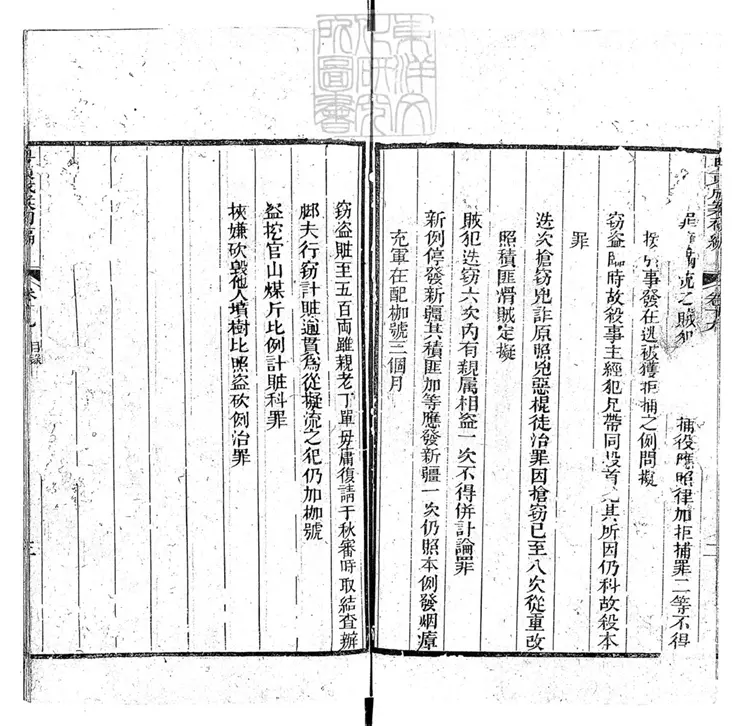 東洋文
化研究
所圖書
罪擬流之賊犯 捕役應照律加拒捕罪二等不得
按事發在逃被獲拒捕之例問擬
竊盜臨時故殺事主經犯兄帶同投首免其所因仍科故殺本
罪
迭次搶竊兇詐原照兇惡棍徒治罪因搶竊已至八次從重改
照積匪猾賊定擬
賊犯迭竊六次內有親属相盜一次不得併計論罪
新例停發新疆其積匪加等應發新疆一次仍照本例發烟瘴
充軍在配枷號三個月
二
竊盜賍至五百両雖親老丁單毋庸復請于秋審時取結查辦
脚夫行竊計賍逾貫爲從擬流之犯仍加枷號
盜挖官山煤斤比例計賍科罪
挾嫌砍毀他人墳樹比照盜砍例治罪
目録
三